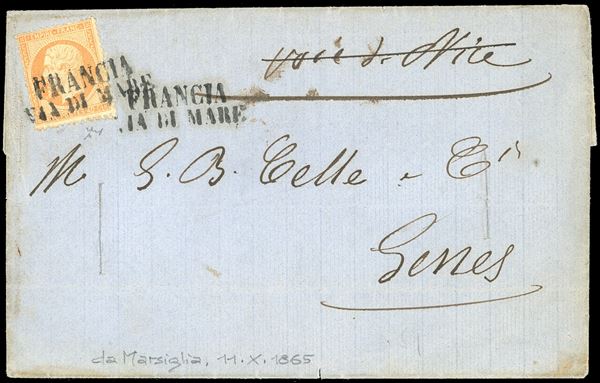 EMPIRE FRANC
FRANCIA
VIA DI MARE
FRANCIA
VIA DI MARE
voie de Nice
M G. B. Celle e Cie
Gênes
da Marsiglia, 11.X.1865